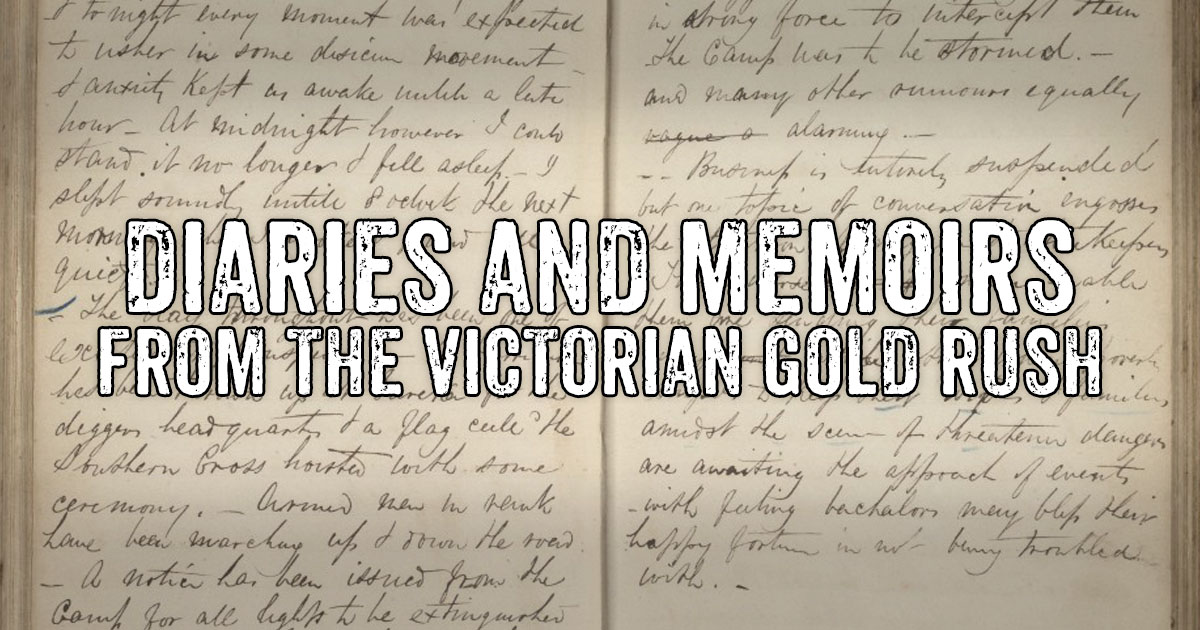 to night every moment was expected
to usher in some decisive movement
& anxiety Kept us awake untill a late
hour – At midnight however I could
stand it no longer & fell asleep. – I
slept soundly untile 8 oclock the next
quiet
– The
diggers head quarters & a flag calld "the
Southern Cross hoisted with some
ceremony. – Armed men in rank
have been marching up & down the road.
– A notice has been issued from the
Camp for all lights to be extinguished
in strong force to intercept them
the Camp was to be stormed. –
and many other rumours equally
vague & alarming. –
-- Business is entirely suspended
but one topic of conversation engrosses
the
Keepers
them
families
amidst the scene of threatening dangers
are awaiting the approach of events
– with feeling bachelors may bless their
happy fortune in not being troubled
with. –
DIARIES AND MEMOIRS
FROM THE VICTORIAN GOLD RUSH